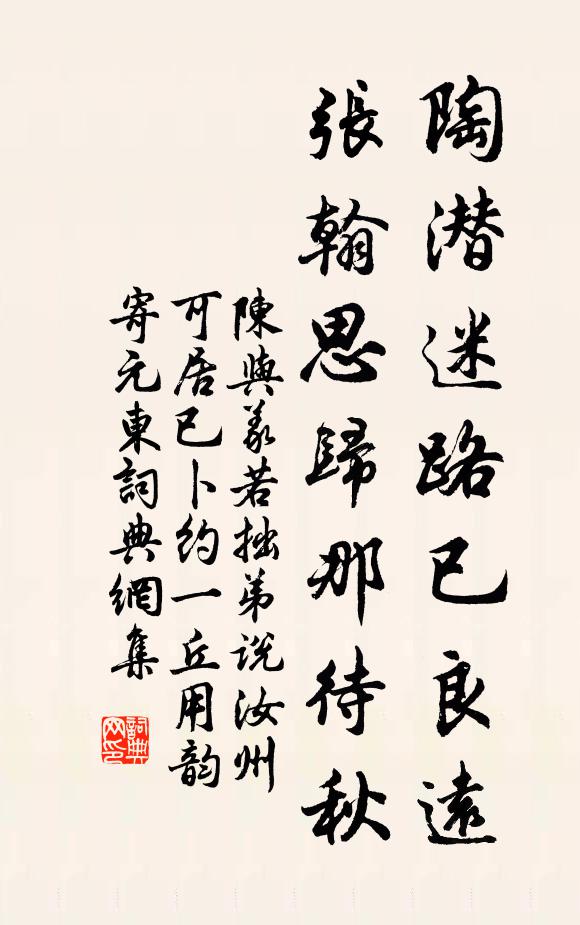 陶潛迷路已良遠
張翰思歸那待秋
陳與義若拙弟說汝州
可居已卜約一丘用韵
寄元東詞典網集
詞典網印